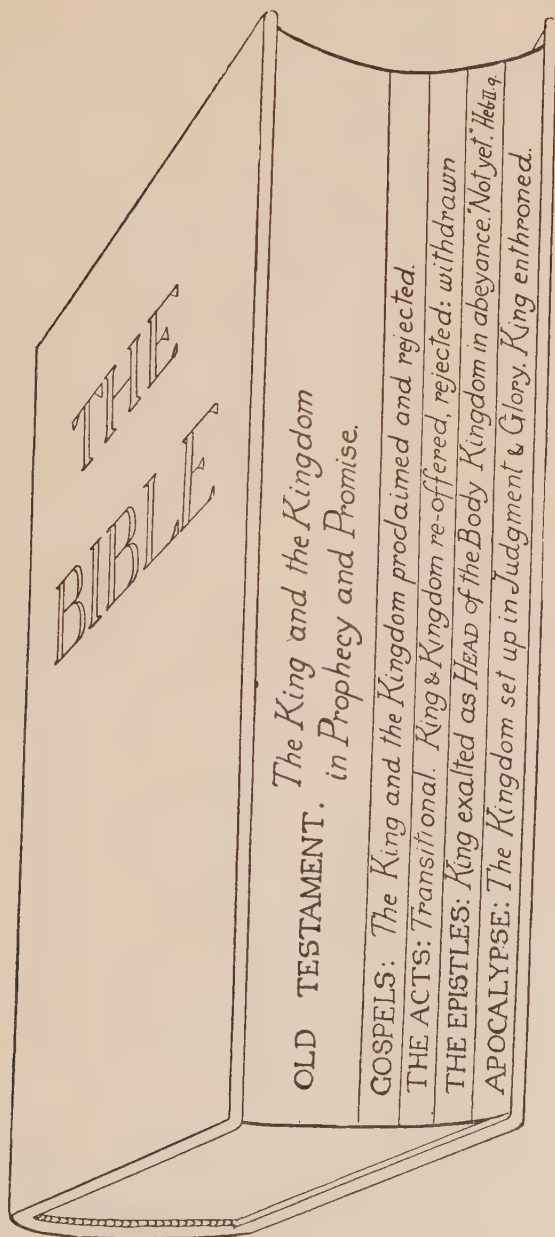 THE
BIBLE
OLD TESTAMENT. The King and the Kingdom
in Prophecy and Promise.
GOSPELS: The King and the Kingdom proclaimed and rejected.
THE ACTS: Transitional. King & Kngdom re-offered, rejected: withdrawn
THE EPISTLES: King exalted as HEAD of the Body Kingdom in abeyance. "Not yet." Heb II. 9.
APOCALYPSE: The Kingdom set up in Judgment & Glory. King enthroned.